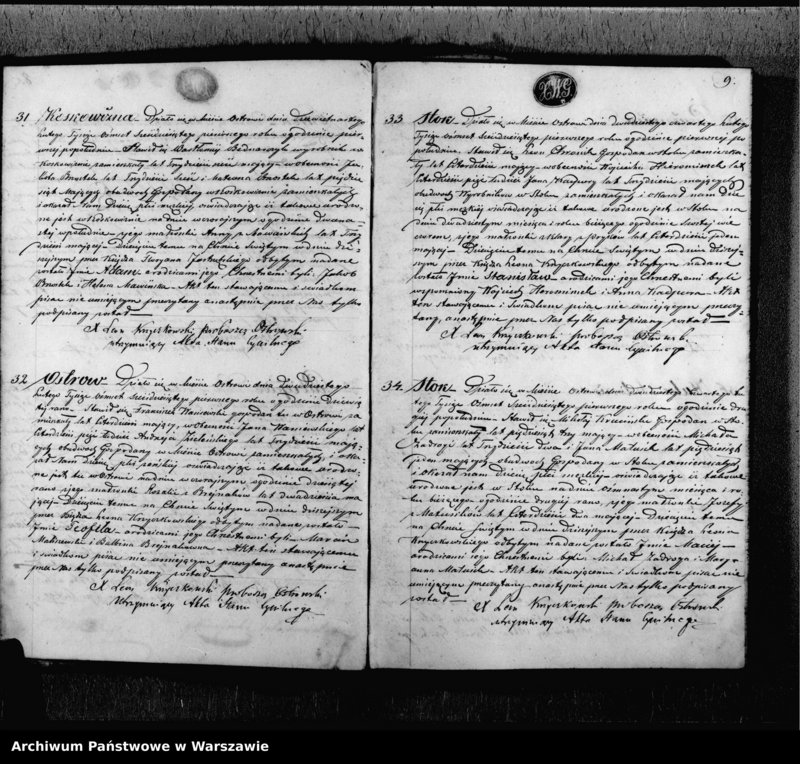 31 Koskowizna - Działo się w Mieście Ostrowi dnia
Lutego Tysiąc ośmset sześćdziesiątego pierwszego roku o godzinie pier-
wszej popołudniu. Stawił się Bartłomiej Bednarczyk wyrobnik w
zamieszkały lat Trzydzieści mający w obecności
lat Trzydzieści i lat pięćdzie-
siąt Mających obydwóch Gospodarzy zamieszkałych
i okazał Nam Dziecię płci męzkiej oświadczając iż takowe urodzo-
ne jest w dniu wczorajszym o godzinie dwuna-
stej w południe z jego małżonki Anny z lat Trzy-
dzieści mającej. Dziecięciu temu na Chrzcie Świętym w dniu dzi-
siejszym przez Księdza odbytym nadane
zostało Imie Adam a rodzicami jego Chrzestnemi byli: Jakób
i - Akt ten stawającemu i świadkom
pisać nie umiejącym przeczytany a następnie przez Nas tylko
podpisany został
X Leon Knyszkowski Proboszcz Ostrowski
utrzymujący Akta Stanu Cywilnego
32 Ostrow - Działo się w Mieście Ostrowi dnia Dwudziestego
Lutego Tysiąc ośmset sześćdziesiątego pierwszego roku o godzinie
rano - Stawił się Franciszek gospodarz tu w Ostrowi za-
mieszkały lat czterdzieści mający, w obecności Jana lat
czterdzieści pięć tudzież Andrzeja Zielińskiego lat Trzydzieści mają-
cych obydwóch Gospodarzy w Mieście Ostrowi zamieszkałych, i oka-
zał Nam Dziecię płci żeńskiej oświadczając iż takowe urodzo-
ne jest tu w Ostrowi w dniu wczorajszym o godzinie dziewiątej
rano z jego małżonki Rozalii z lat dwadzieścia ma-
jącej Dziecięciu temu na Chrzcie Świętym w dniu dzisiejszym
przez Księdza Leona Knyszkowskiego odbytym nadane zostało
Imie Teofila a rodzicami jego Chrzestnemi byli: Marcin
i Balbina - Akt ten stawającemu
i świadkom pisać nie umiejącym przeczytany a następnie
przez Nas tylko podpisany został
X Leon Knyszkowski Proboszcz Ostrowski
utrzymujący Akta Stanu Cywilnego
9.
33 Stok - Działo się w Mieście Ostrowi dnia dwudziestego czwartego Lutego
Tysiąc ośmset sześćdziesiątego pierwszego roku o godzinie pierwszej po
południu. Stawił się Leon Gospodarz w Stoku zamieszka-
ły lat czterdzieści mający w obecności Wojciecha lat
czterdzieści pięć tudzież Jana lat Trzydzieści mających
obudwóch Wyrobników w Stoku zamieszkałych i okazał nam Dzie-
cię płci męzkiej oświadczając iż takowe urodzone jest w Stoku na
dniu dwudziestym miesiąca i roku bieżącego o godzinie szóstej wie-
czorem, z jego małżonki lat czterdzieści jeden
mającej - Dziecięciu temu na Chrzcie Świętym w dniu dzisiej-
szym przez Księdza Leona Knyszkowskiego odbytym nadane
zostało Imie Stanisław a rodzicami jego Chrzestnemi byli
wspomniony Wojciech i Anna - Akt
ten stawającemu i świadkom pisać nie umiejącym przeczy-
tany, a następnie przez Nas tylko podpisany został
X Leon Knyszkowski Proboszcz Ostrowski
utrzymujący Akta Stanu Cywilnego
34. Stok - Działo się w Mieście Ostrowi dnia dwudziestego czwartego Lu-
tego Tysiąc ośmset sześćdziesiątego pierwszego roku o godzinie dru-
giej popołudniu. Stawił się Mikołaj Gospodarz w Sto-
ku zamieszkały lat pięćdziesiąt trzy mający w obecności Michała
Zadrogi lat Trzydzieści dwa i Jana lat pięćdziesiąt
mających obydwóch Gospodarzy w Stoku zamieszkałych
i okazał nam Dziecię płci męzkiej - oświadczając iż takowe
urodzone jest w Stoku na dniu miesiąca i ro-
ku bieżącego o godzinie drugiej rano, z jego małżonki Józefy
z lat czterdzieści dwa mającej - Dziecięciu temu
na Chrzcie Świętym w dniu dzisiejszym przez Księdza Leona
Knyszkowskiego odbytym nadane zostało Imie Maciej -
a rodzicami jego Chrzestnemi byli: Michał Zadroga i Mary-
anna - Akt ten stawającemu i świadkom pisać nie
umiejącym przeczytany a następnie przez Nas tylko podpisany
został -
X Leon Knyszkowski Proboszcz Ostrowski
utrzymujący Akta Stanu Cywilnego
Archiwum Państwowe w Warszawie